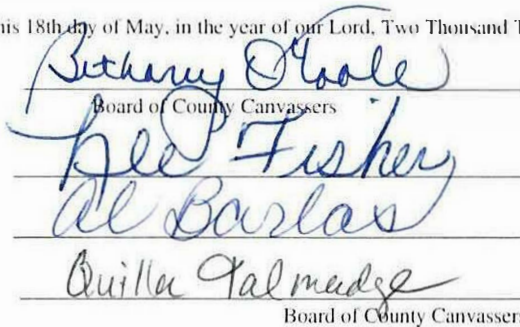 his 18th day of May, in the year of our Lord, Two Thousand T
Bethany O'Toole
Board of County Canvassers
Lee Fisher
Al Barlas
Quilla Talmadge
Board of County Canvassers